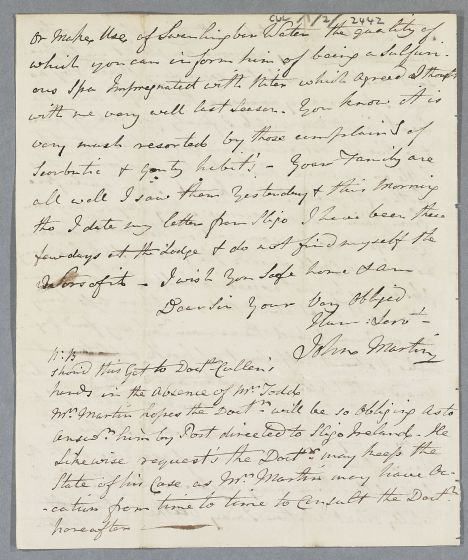 CUL/1/2/2442
or Makes Use of Swanlingbar Water the quality of
which you can inform him of being a Sulfur:
ous Spa Impregnated with Niter which agreed I thought
with me very well last Season. You know it is
very much resorted by those complain'd of
Scorbutic & Gouty habits, - Your Family are
all well I saw them Yesterday & this Morning
tho I date my letter from Sligo I have been these
few days at the Lodge & do not find myself the
Worse of it - I wish You Safe home & am
Dear Sir Your Very Obliged
Hum: Servt
John Martin
N:B
should this Get to Doctr Cullen's
hands in the Absence of Mr Todd
Mr Martin hopes the Doctr will be so Obliging as to
answr him by Post directed to Sligo Ireland - He
Likewise request's the Doctr may keep the
State of his Case as Mr Martin may have Oc-
-cation from time to time to Consult the Doctr
hereafter